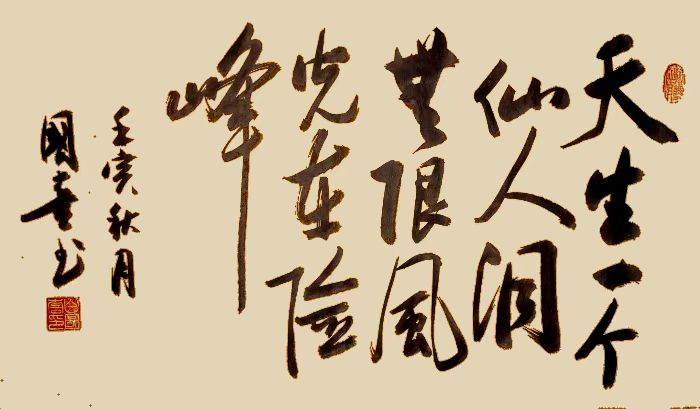 天生一个
仙人洞
無限風
光在险
峰
壬寅秋月
國喜书